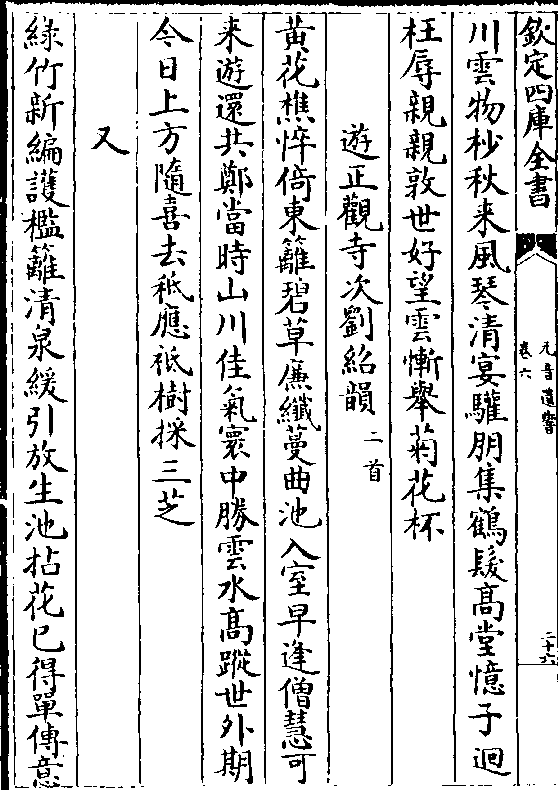 欽定四庫全書
元音遺響
卷六
二十六
川雲物杪秋来風琴清宴驩朋集鶴髮髙堂憶子迴
枉辱親親敦世好望雲慚舉菊花杯
遊正觀寺次劉紹韻二首
黄花樵悴倚東籬碧草廉纖蔓曲池入室早逢僧慧可
来遊還共鄭當時山川佳氣寰中勝雲水髙蹤世外期
今日上方隨喜去秪應秪樹採三芝
又
緑竹新編護檻籬清泉緩引放生池拈花已得單傳意